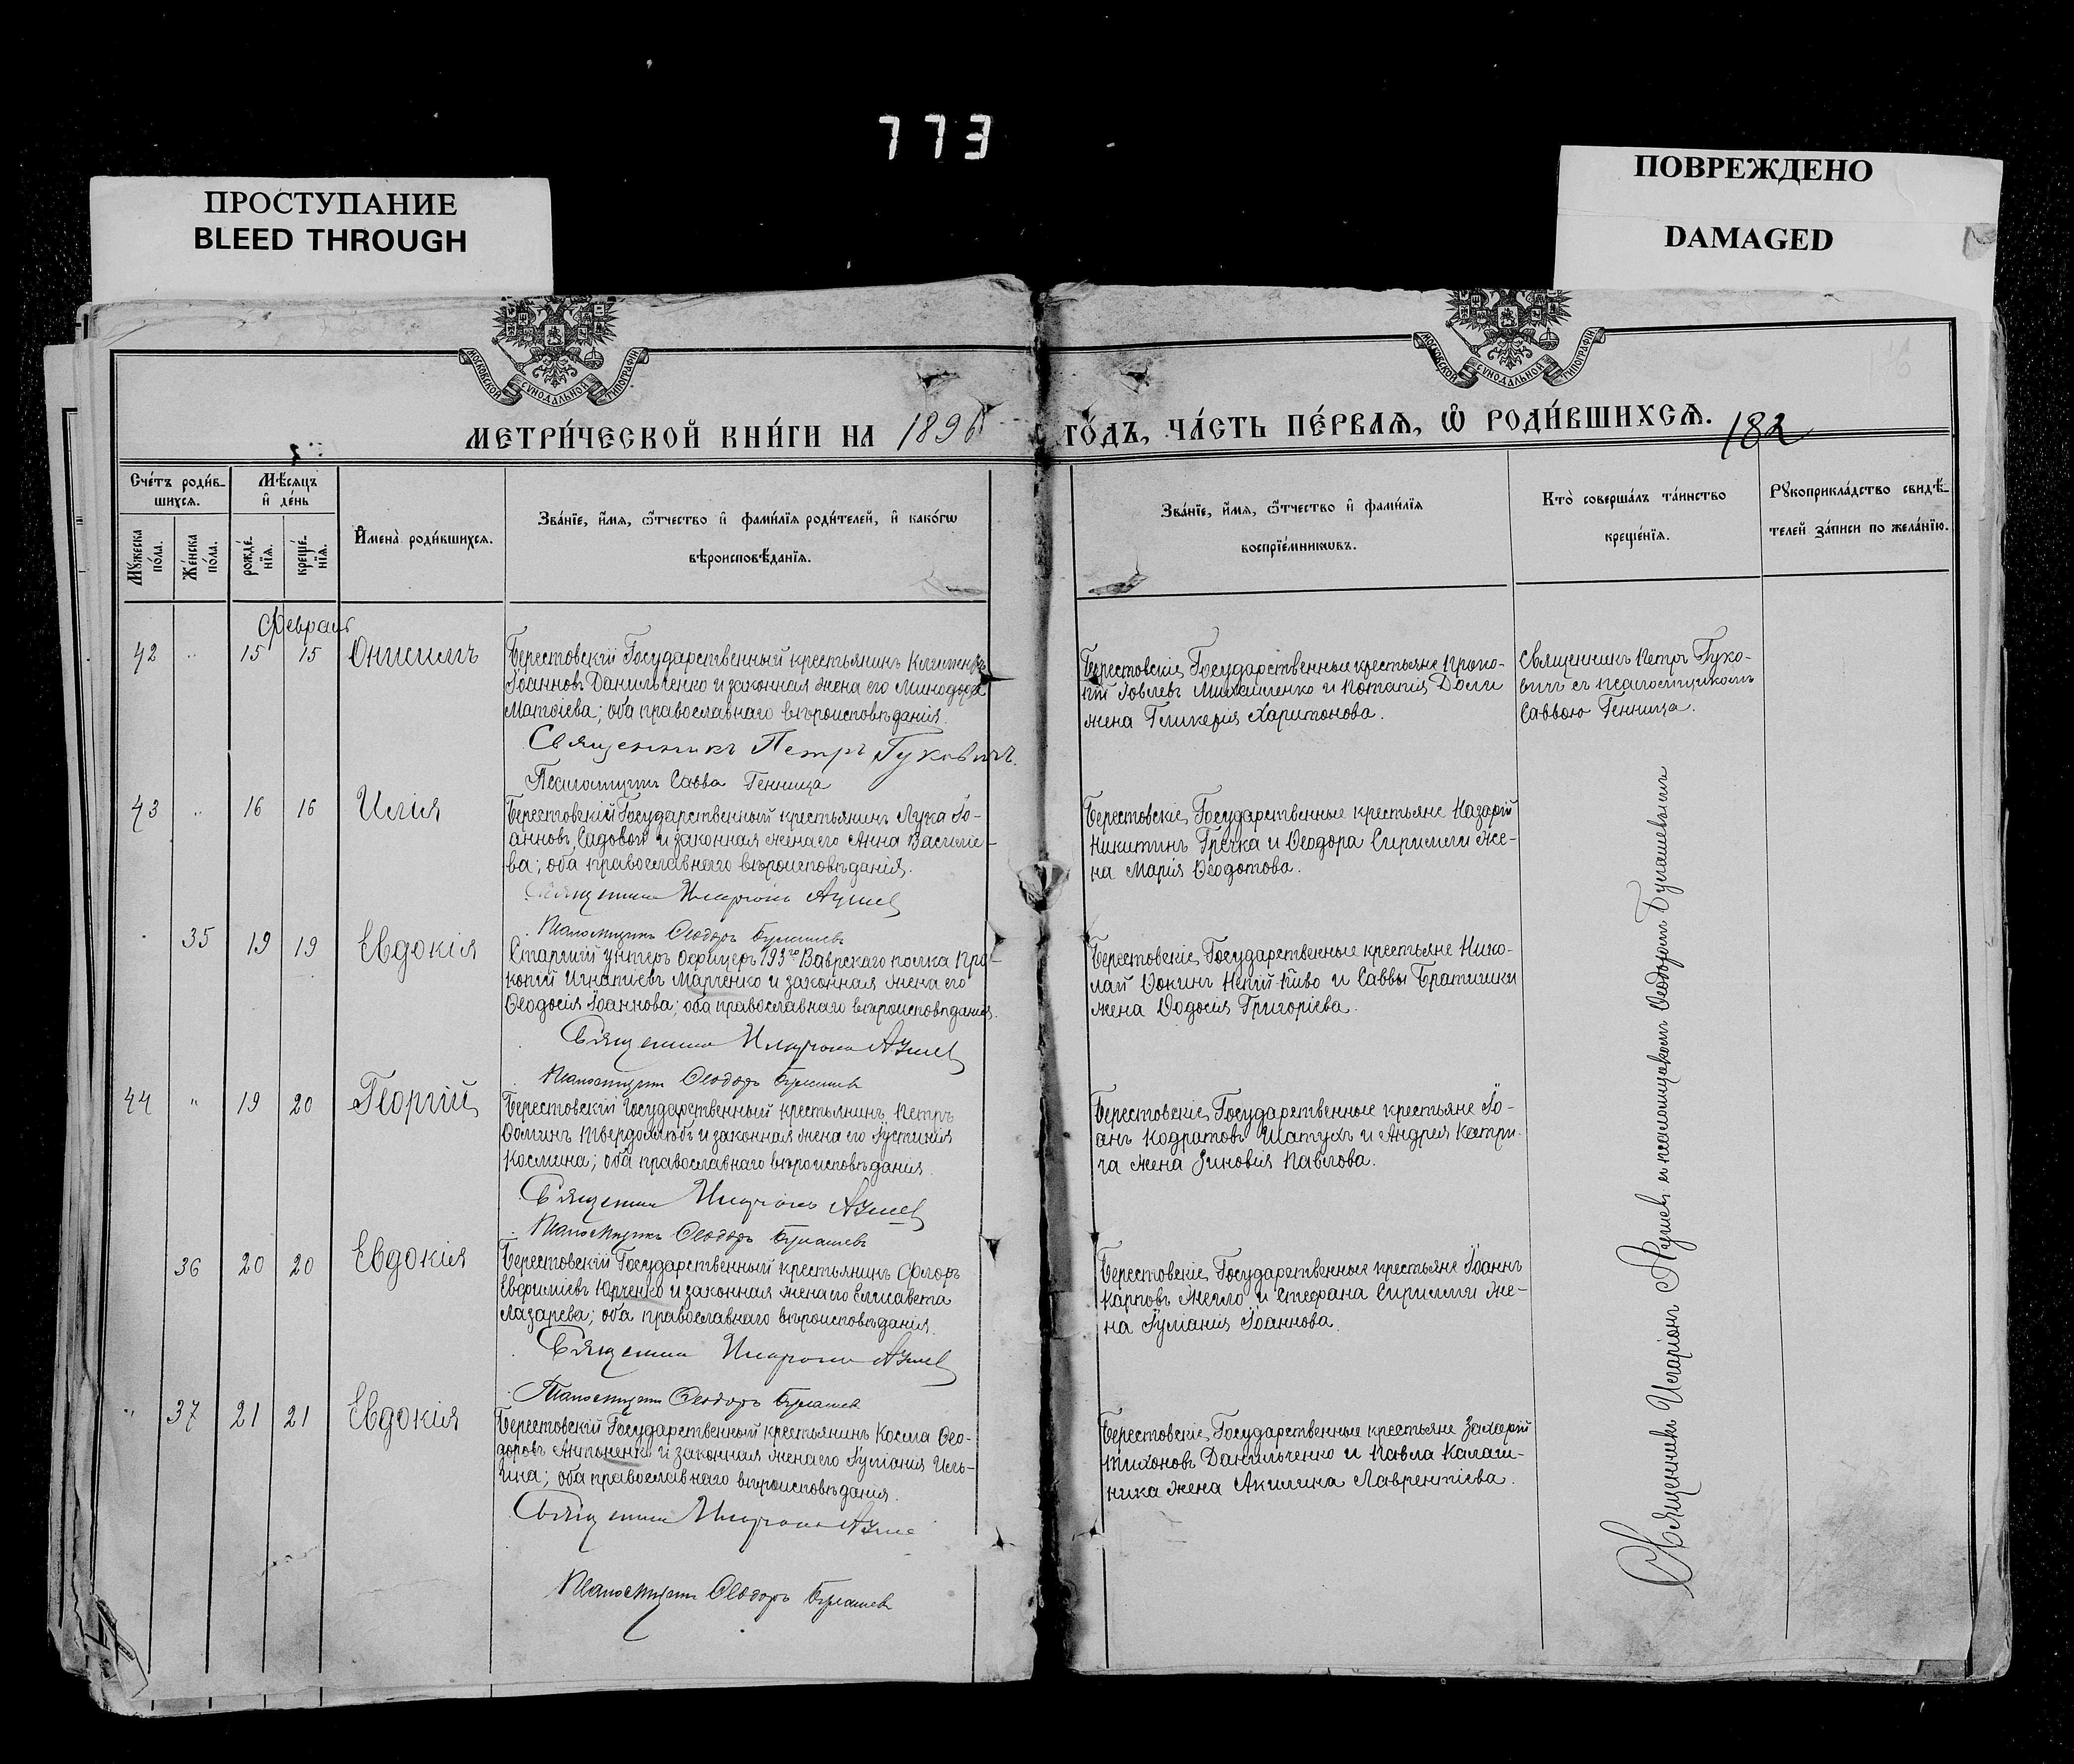 773
ПРОСТУПАНИЕ
BLEED THROUGH
ПОВРЕЖДЕНО
DAMAGED
МОСКОВСКОЙ СУНОДАЛЬНОЙ ТИПОГРАФІИ
МОСКОВСКОЙ СУНОДАЛЬНОЙ ТИПОГРАФІИ
МЕТРИ́ЧЕСКОЙ КНИ́ГИ НА 1896 ГО́ДЪ, ЧА́СТЬ ПЕ́РВАЯ, Ѡ҆ РОДИ́ВШИХСЯ. 182
Сче́тъ роди́в-
шихся.
Мѣ́сяцъ
и҆ де́нь
Мꙋ́жеска по́ла.
Же́нска по́ла.
рожде́нїя.
креще́нїя.
И҆мена̀ роди́вшихся.
Зва́нїе, и҆́мя, ѻ҆́тчество и҆ фами́лїя роди́телей, и҆ како́гѡ
вѣроисповѣ́данїя.
Зва́нїе, и҆́мя, ѻ҆́тчество и҆ фами́лїя
воспрїе́мникѡвъ.
Кто̀ соверша́лъ та́инство
креще́нїя.
Рꙋкоприкла́дство свидѣ́-
телей за́писи по жела́нїю.
Февраль
42 " 15 15 Онисимъ
Берестовскій Государственный крестьянинъ
Іоанновъ Данильченко и законная жена его Минодора
Матѳіева; оба православнаго вѣроисповѣданія.
Священникъ Петръ Гуковичъ.
Псаломщикъ Савва Генница
Берестовскіе Государственные крестьяне Проко-
пій Іовлевъ Михайленко и Потапія Доли
жена Гликерія Харитонова.
Священникъ Петръ Гуко-
вичъ съ псаломщикомъ
Саввою Генница.
43 " 16 16 Илія
Берестовскій Государственный крестьянинъ Лука Іо-
анновъ Садовый и законная жена его Анна Василіе-
ва; оба православнаго вѣроисповѣданія.
Священникъ Иларіонъ
Псаломщикъ Ѳеодоръ
Берестовскіе Государственные крестьяне Назарій
Никитинъ Гречка и Ѳеодора Сиримли же-
на Марія Ѳеодотова.
35 19 19 Евдокія
Старшій унтеръ офицеръ 193го Ваврскаго полка Про-
копій Игнатіевъ Марченко и законная жена его
Ѳеодосія Іоаннова; оба православнаго вѣроисповѣданія.
Священникъ Иларіонъ
Псаломщикъ Ѳеодоръ
Берестовскіе Государственные крестьяне Нико-
лай Ѳокинъ Непій-Пиво и Саввы Братишки
жена Ѳодосія Григоріева.
44 " 19 20 Георгій
Берестовскій Государственный крестьянинъ Петръ
Ѳоминъ Твердохлѣбъ и законная жена его Іустинія
Космина; оба православнаго вѣроисповѣданія.
Священникъ Иларіонъ
Псаломщикъ Ѳеодоръ
Берестовскіе Государственные крестьяне Іо-
анъ Кодратовъ Шатухъ и Андрея Катри-
ча жена Зиновія Павлова.
36 20 20 Евдокія
Берестовскій Государственный крестьянинъ Флоръ
Евфиміевъ Юрченко и законная жена его Елисавета
Лазарева; оба православнаго вѣроисповѣданія.
Священникъ Иларіонъ
Псаломщикъ Ѳеодоръ
Берестовскіе Государственные крестьяне Іоаннъ
Карповъ и Стефана Сиримли же-
на Іуліанія Іоаннова.
" 37 21 21 Евдокія
Берестовскій Государственный крестьянинъ Косма Ѳео-
доровъ Антоненко и законная жена его Іуліанія Иль-
ина; оба православнаго вѣроисповѣданія.
Священникъ Иларіонъ
Псаломщикъ Ѳеодоръ
Берестовскіе Государственные крестьяне Захарій
Тихоновъ Данильченко и Павла Калаш-
ника жена Акилина Лаврентіева.
Священникъ Иларіонъ съ псаломщикомъ Ѳеодоромъ